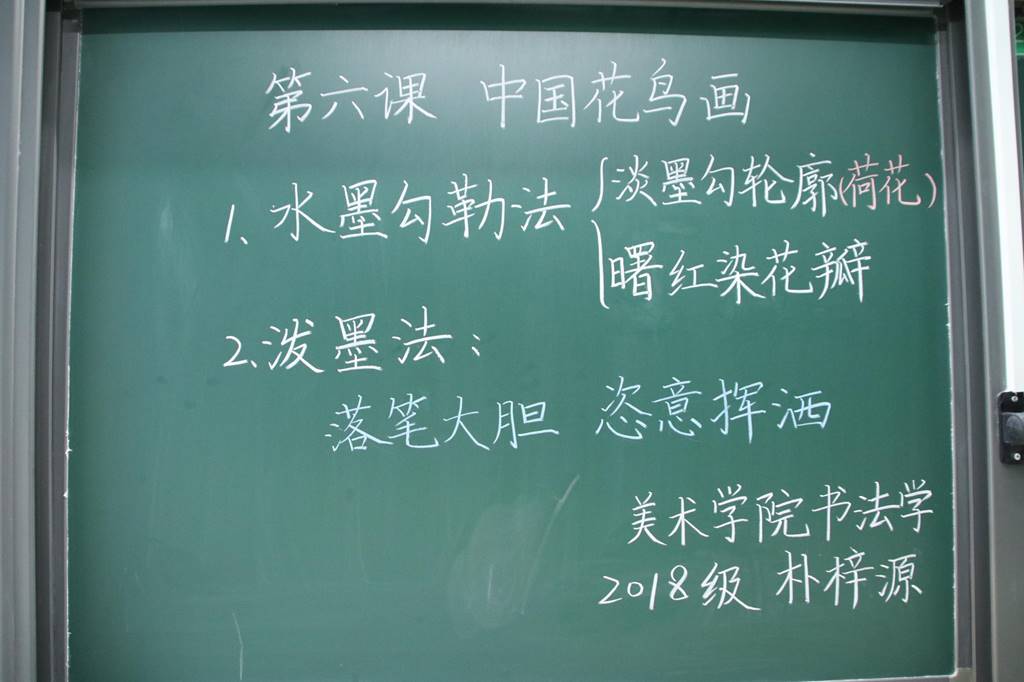 第六课 中国花鸟画
1、水墨勾勒法 { 淡墨勾轮廓(荷花)
曙红染花瓣
2、泼墨法：
落笔大胆 恣意挥洒
美术学院书法学
2018级 朴梓源